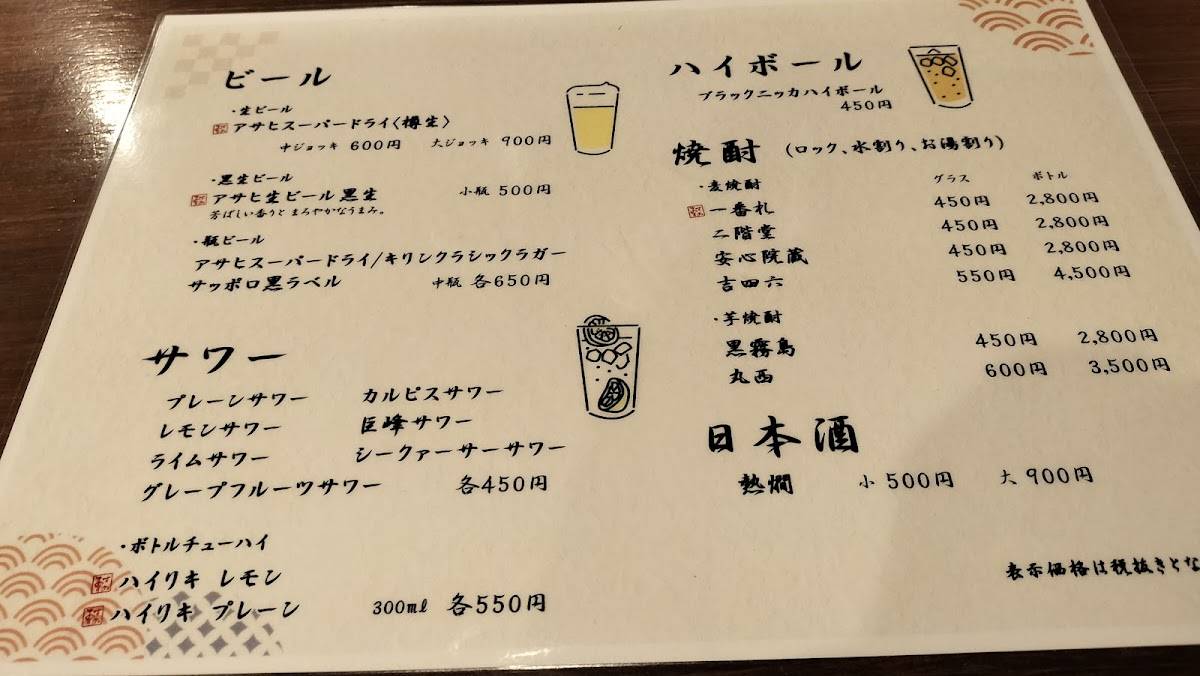 ビール
・生ビール
アサヒスーパードライ〈樽生〉
中ジョッキ 600円 大ジョッキ 900円
・黒生ビール
アサヒ生ビール黒生 小瓶 500円
芳ばしい香りとまろやかなうまみ。
・瓶ビール
アサヒスーパードライ/キリンクラシックラガー
サッポロ黒ラベル 中瓶 各650円
サワー
プレーンサワー カルピスサワー
レモンサワー 巨峰サワー
ライムサワー シークァーサーサワー
グレープフルーツサワー 各450円
・ボトルチューハイ
ハイリキ レモン
ハイリキ プレーン 300ml 各550円
ハイボール
ブラックニッカハイボール
450円
焼酎 (ロック、水割り、お湯割り)
・麦焼酎 グラス ボトル
一番札 450円 2,800円
二階堂 450円 2,800円
安心院蔵 450円 2,800円
吉四六 550円 4,500円
・芋焼酎
黒霧島 450円 2,800円
丸西 600円 3,500円
日本酒
熱燗 小 500円 大 900円
表示価格は税抜きとな